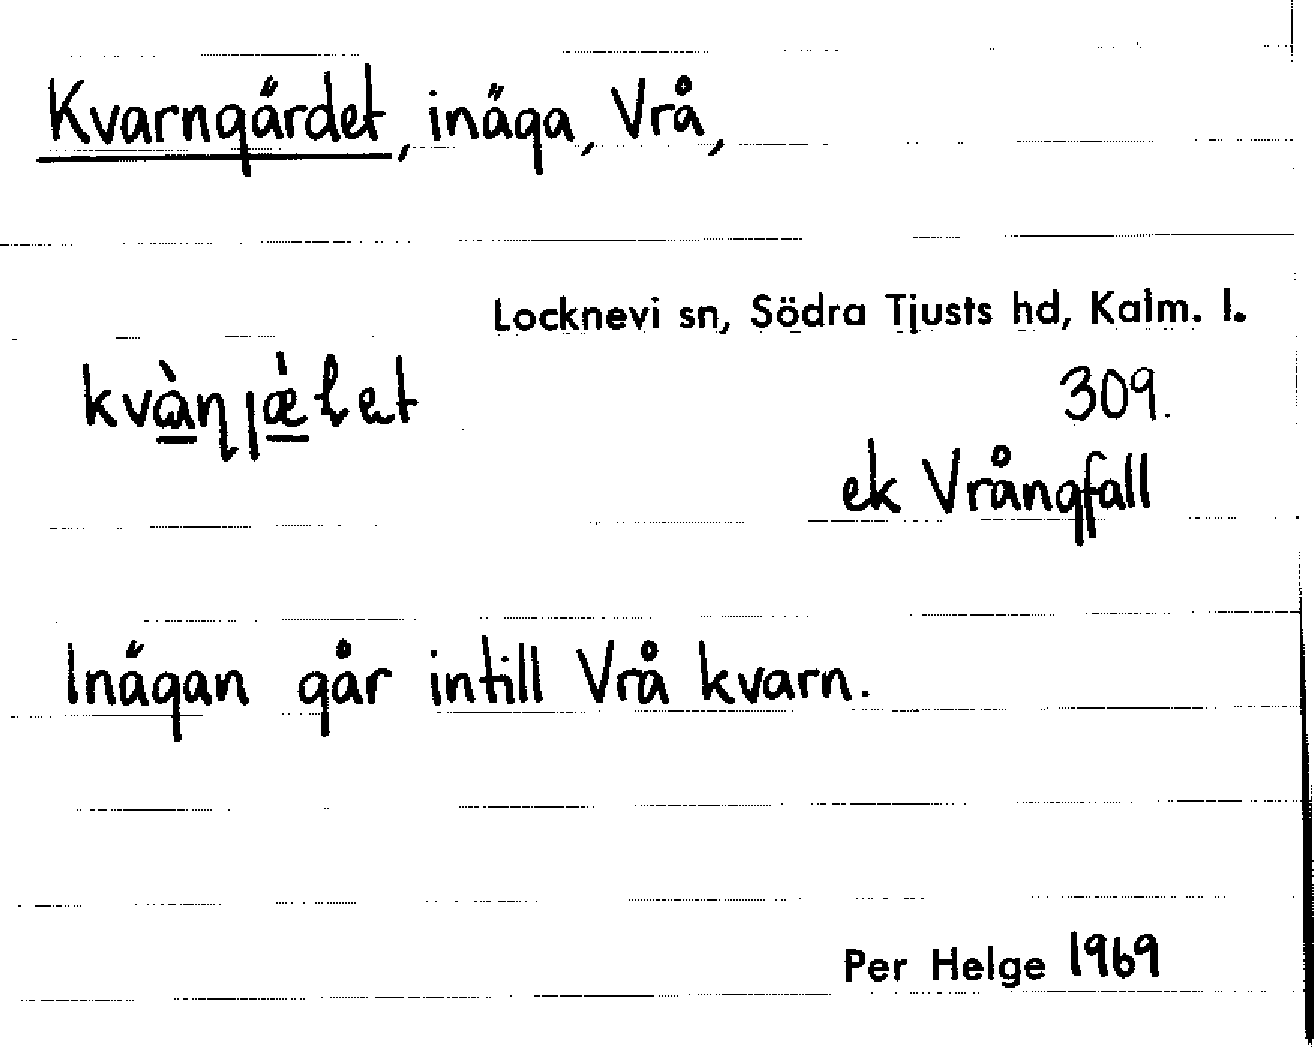 Kvarngärdet, inäga, Vrå,
Locknevi sn, Södra Tjusts hd, Kalm. l.
309.
ek Vrångfall
Inägan går intill Vrå kvarn.
Per Helge 1969